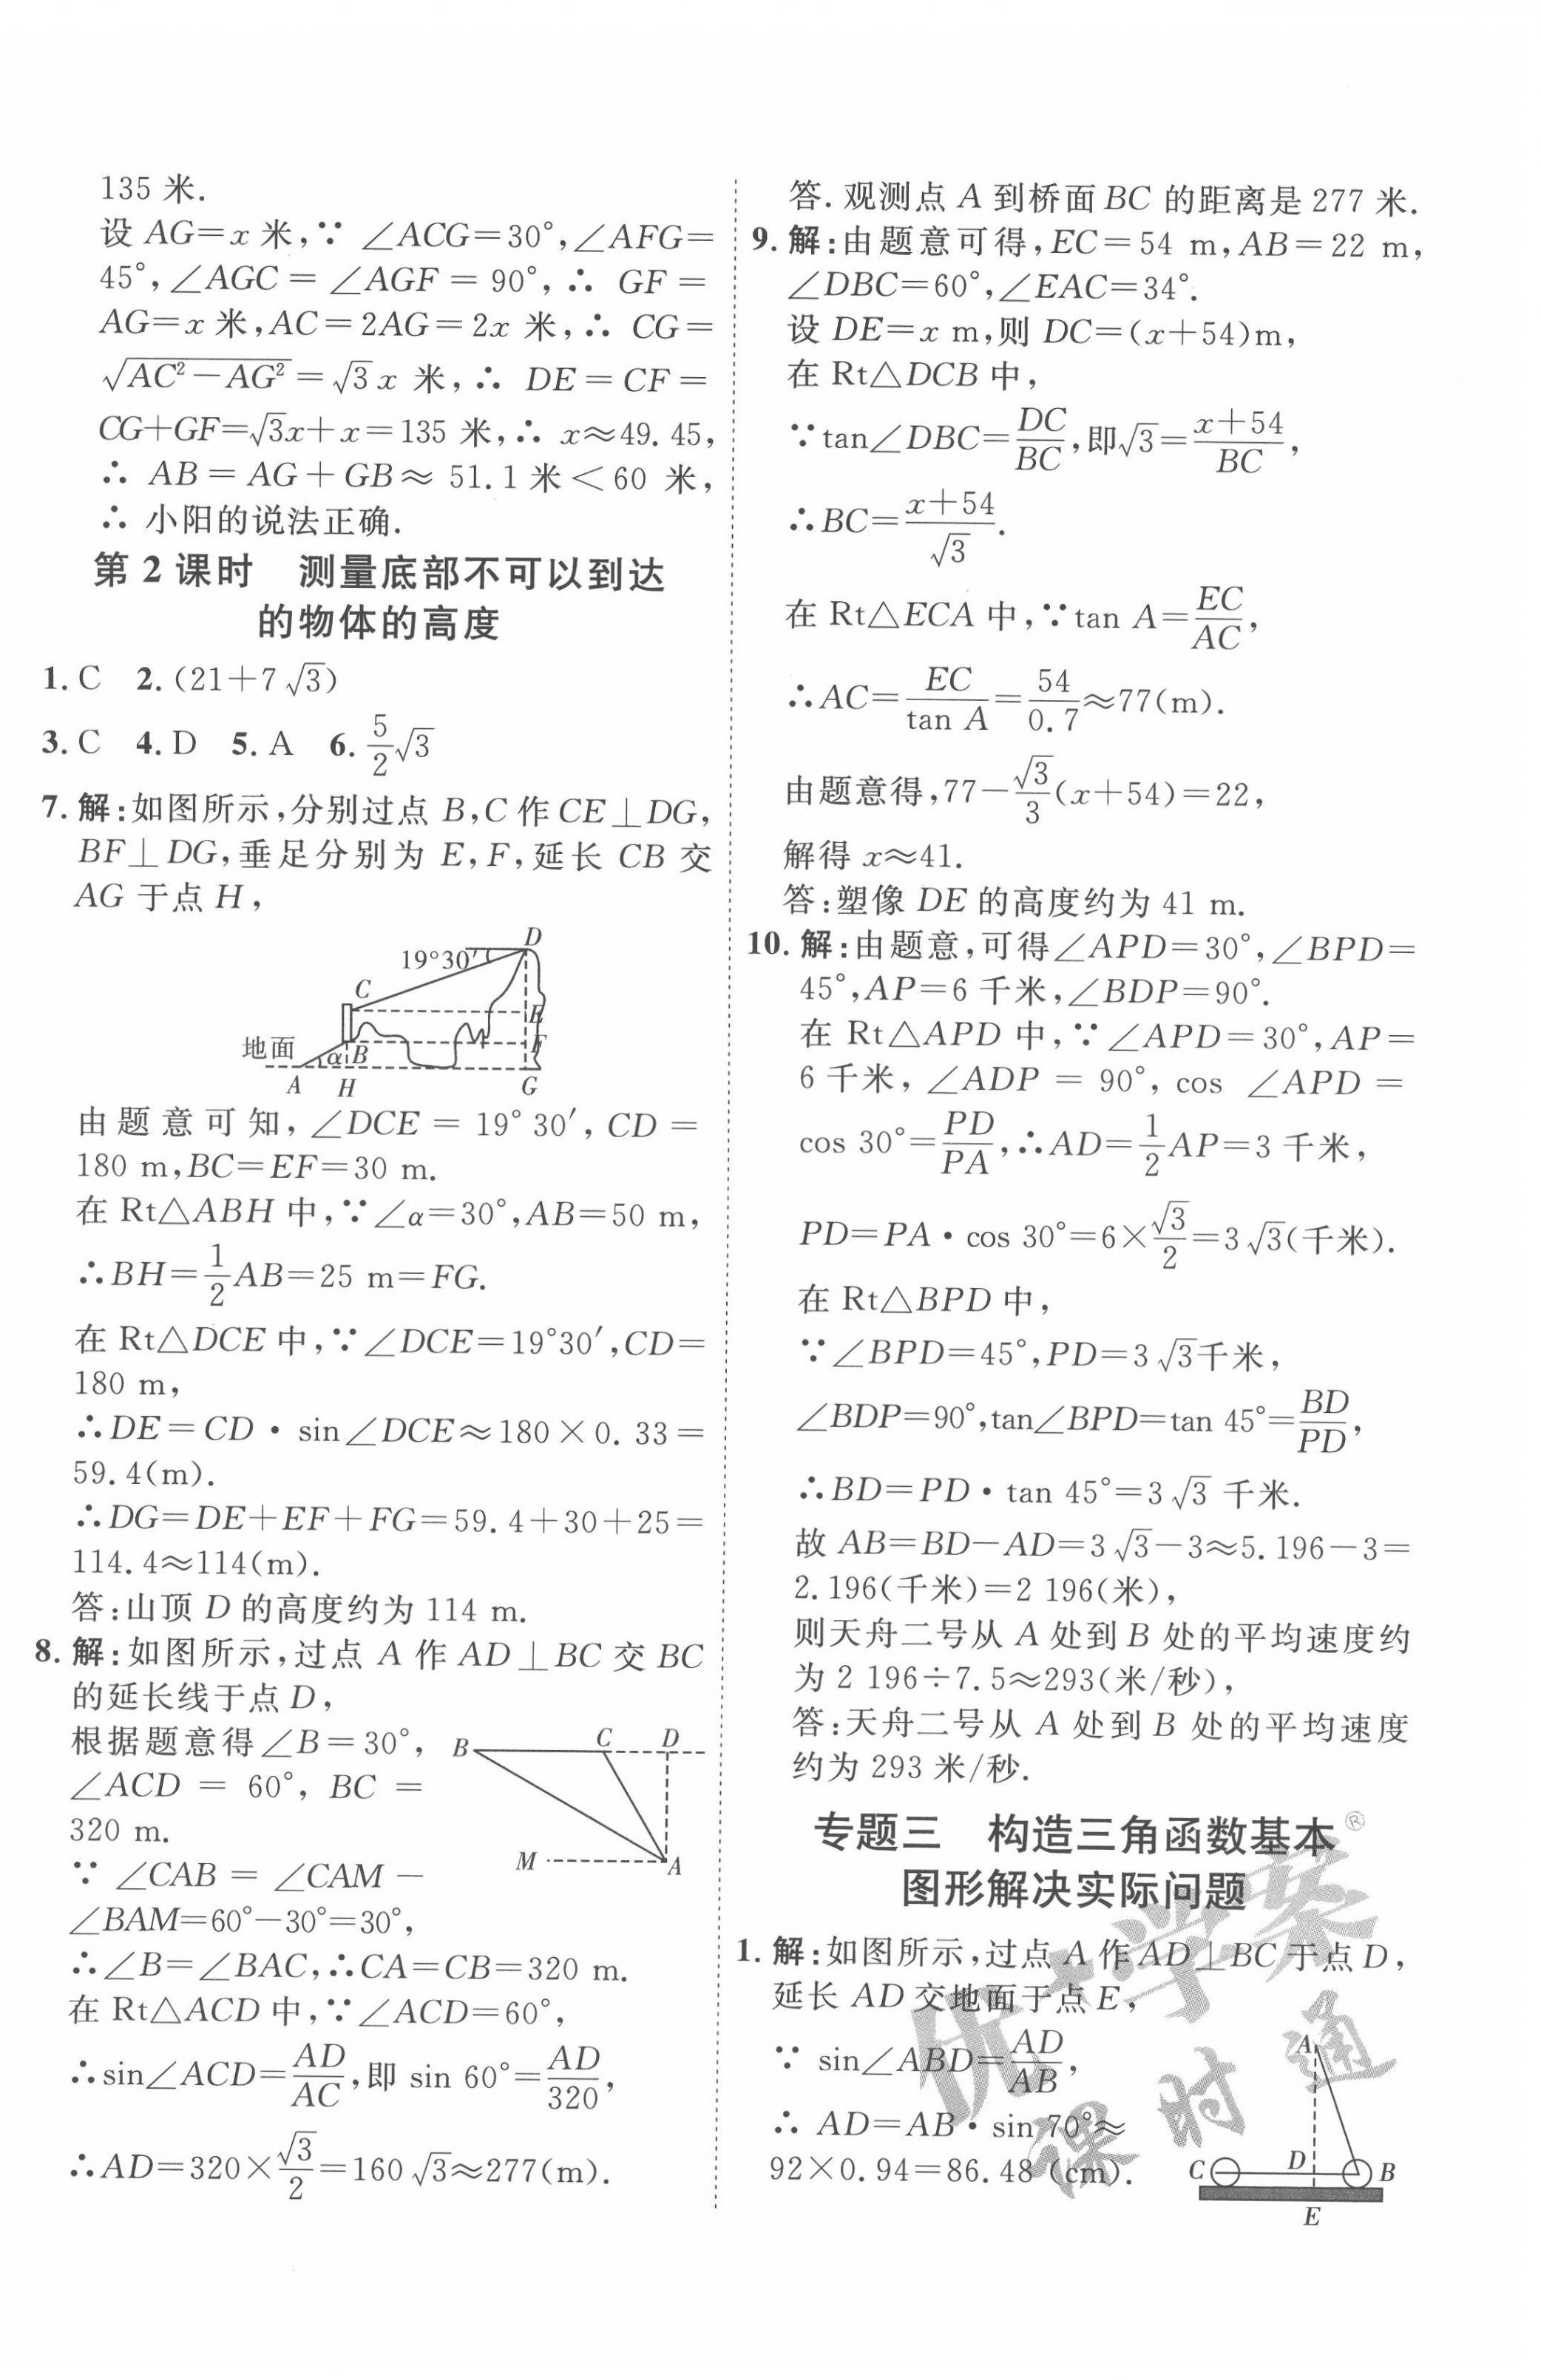 135 米.
设 AG=x 米,∵ ∠ACG=30°,∠AFG=
45°,∠AGC = ∠AGF = 90°,∴ GF =
AG=x 米,AC=2AG=2x 米,∴ CG=
√(AC²-AG²) = √3 x 米,∴ DE = CF =
CG+GF=√3x+x=135 米,∴ x≈49.45,
∴ AB = AG + GB ≈ 51.1 米 < 60 米,
∴ 小阳的说法正确.
第 2 课时 测量底部不可以到达
的物体的高度
1. C 2. (21+7√3)
3. C 4. D 5. A 6. 5/2 √3
7. 解:如图所示,分别过点 B,C 作 CE⊥DG,
BF⊥DG,垂足分别为 E,F,延长 CB 交
AG 于点 H,
D
19°30′
C
E
地面 α B F
A H G
由题意可知,∠DCE = 19°30′,CD =
180 m,BC=EF=30 m.
在 Rt△ABH 中,∵∠α=30°,AB=50 m,
∴BH=1/2 AB=25 m=FG.
在 Rt△DCE 中,∵∠DCE=19°30′,CD=
180 m,
∴DE=CD·sin∠DCE≈180×0.33=
59.4(m).
∴DG=DE+EF+FG=59.4+30+25=
114.4≈114(m).
答:山顶 D 的高度约为 114 m.
8. 解:如图所示,过点 A 作 AD⊥BC 交 BC
的延长线于点 D,
根据题意得∠B=30°,
∠ACD = 60°, BC =
320 m.
∵ ∠CAB = ∠CAM -
∠BAM=60°-30°=30°,
B C D
M A
∴∠B=∠BAC,∴CA=CB=320 m.
在 Rt△ACD 中,∵∠ACD=60°,
∴sin∠ACD=AD/AC,即 sin 60°=AD/320,
∴AD=320×√3/2=160√3≈277(m).
答. 观测点 A 到桥面 BC 的距离是 277 米.
9. 解:由题意可得,EC=54 m,AB=22 m,
∠DBC=60°,∠EAC=34°.
设 DE=x m,则 DC=(x+54)m,
在 Rt△DCB 中,
∵tan∠DBC=DC/BC,即√3=(x+54)/BC,
∴BC=(x+54)/√3.
在 Rt△ECA 中,∵tan A=EC/AC,
∴AC=EC/tan A=54/0.7≈77(m).
由题意得,77-√3/3(x+54)=22,
解得 x≈41.
答:塑像 DE 的高度约为 41 m.
10. 解:由题意,可得∠APD=30°,∠BPD=
45°,AP=6 千米,∠BDP=90°.
在 Rt△APD 中,∵∠APD=30°,AP=
6 千米,∠ADP = 90°, cos ∠APD =
cos 30°=PD/PA,∴AD=1/2 AP=3 千米,
PD=PA·cos 30°=6×√3/2=3√3(千米).
在 Rt△BPD 中,
∵∠BPD=45°,PD=3√3千米,
∠BDP=90°,tan∠BPD=tan 45°=BD/PD,
∴BD=PD·tan 45°=3√3 千米.
故 AB=BD-AD=3√3-3≈5.196-3=
2.196(千米)=2 196(米),
则天舟二号从 A 处到 B 处的平均速度约
为 2 196÷7.5≈293(米/秒),
答:天舟二号从 A 处到 B 处的平均速度
约为 293 米/秒.
专题三 构造三角函数基本
图形解决实际问题
1. 解:如图所示,过点 A 作 AD⊥BC 于点 D,
延长 AD 交地面于点 E,
∵ sin∠ABD=AD/AB,
∴ AD=AB·sin 70°≈
92×0.94=86.48 (cm).
A
C D B
E
优+学案®
课时通